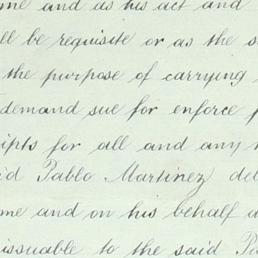 me and as his act and
ll be requisite or as the s
the purpose of carrying
demand sue for enforce p
ipts for all and any
id Pablo Martinez de
me and on his behalf a
issuable to the said Pa